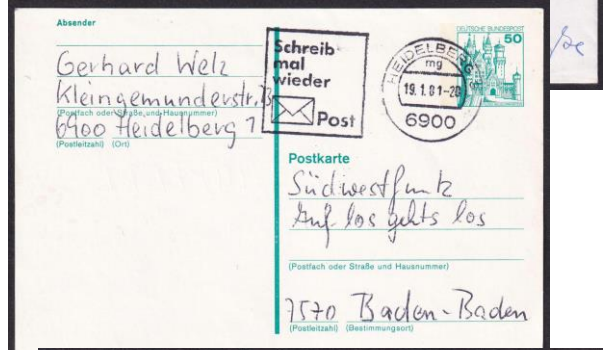 Absender
Gerhard Welz
Kleingemünderstr. 13
(Postfach oder Straße und Hausnummer)
6900 Heidelberg 1
(Postleitzahl) (Ort)
Schreib
mal
wieder
Post
HEIDELBERG
mg
19.1.81-20
6900
DEUTSCHE BUNDESPOST
50
Postkarte
Südwestfunk
Auf los gehts los
(Postfach oder Straße und Hausnummer)
7570 Baden-Baden
(Postleitzahl) (Bestimmungsort)